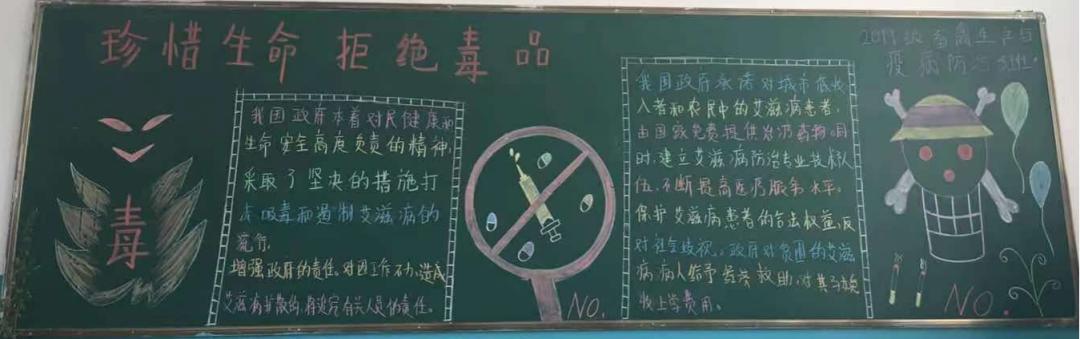 珍惜生命 拒绝毒品
毒
我国政府本着对民健康和
生命安全高度负责的精神,
采取了坚决的措施打
击吸毒和遏制艾滋病的
流行。
增强政府的责任。对因工作不力,造成
艾滋病扩散的,将追究有关人员的责任。
NO.
我国政府承诺对城市低收
入者和农民中的艾滋病患者,
由国家免费提供治疗药物,同
时,建立艾滋病防治专业技术队
伍,不断提高医疗服务水平。
保护艾滋病患者的合法权益,反
对社会歧视。政府对贫困的艾滋
病病人给予经济救助,对其子女免
收上学费用。
2019级畜禽生产与
疫病防治
NO.